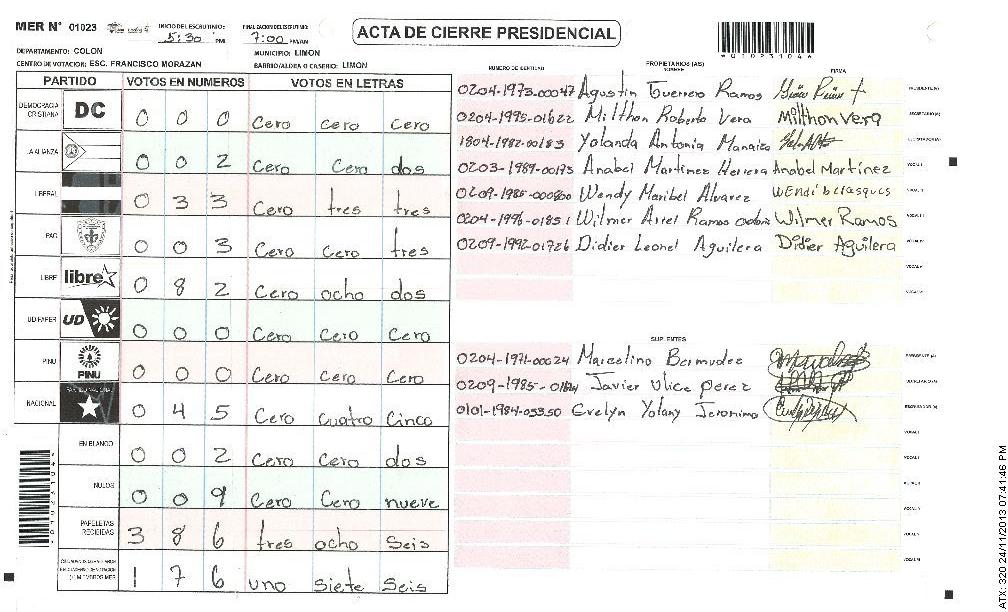 MER N° 01023
INICIO DEL ESCRUTINIO: 5:30 PM
FINALIZACION DEL ESCRUTINIO: 7:00 PM/AM
ACTA DE CIERRE PRESIDENCIAL
DEPARTAMENTO: COLON
MUNICIPIO: LIMON
CENTRO DE VOTACION: ESC. FRANCISCO MORAZAN
BARRIO/ALDEA O CASERIO: LIMON
PARTIDO VOTOS EN NUMEROS VOTOS EN LETRAS
DEMOCRACIA CRISTIANA DC 0 0 0 Cero Cero Cero
LA ALIANZA 0 0 2 Cero Cero dos
LIBERAL 0 3 3 Cero tres tres
PAC 0 0 3 Cero Cero tres
LIBRE libre 0 8 2 Cero ocho dos
UD/FAPER UD 0 0 0 Cero Cero Cero
PINU PINU 0 0 0 Cero Cero Cero
NACIONAL 0 4 5 Cero cuatro Cinco
EN BLANCO 0 0 2 Cero Cero dos
NULOS 0 0 9 Cero Cero nueve
PAPELETAS RECIBIDAS 3 8 6 tres ocho Seis
1 7 6 uno siete Seis
NUMERO DE IDENTIDAD PROPIETARIOS (AS) NOMBRE FIRMA
0204-1973-00047 Agustin Guerrero Ramos
0204-1995-01622 Milthon Roberto Vera Milthon Vera
1804-1982-00183 Yolanda Antonia
0203-1989-00195 Anabel Martinez Herrera Anabel Martínez
0209-1985-000800 Wendy Maribel Alvarez
0204-1996-01851 Wilmer Ariel Ramos Wilmer Ramos
0209-1992-01726 Didier Leonel Aguilera Didier Aguilera
SUPLENTES
0204-1971-00024 Marcelino Bermudez
0209-1985- Javier Ulice perez
0101-1984-03350 Evelyn Yolany Jeronimo
ATX: 320 24/11/2013 07:41:46 PM